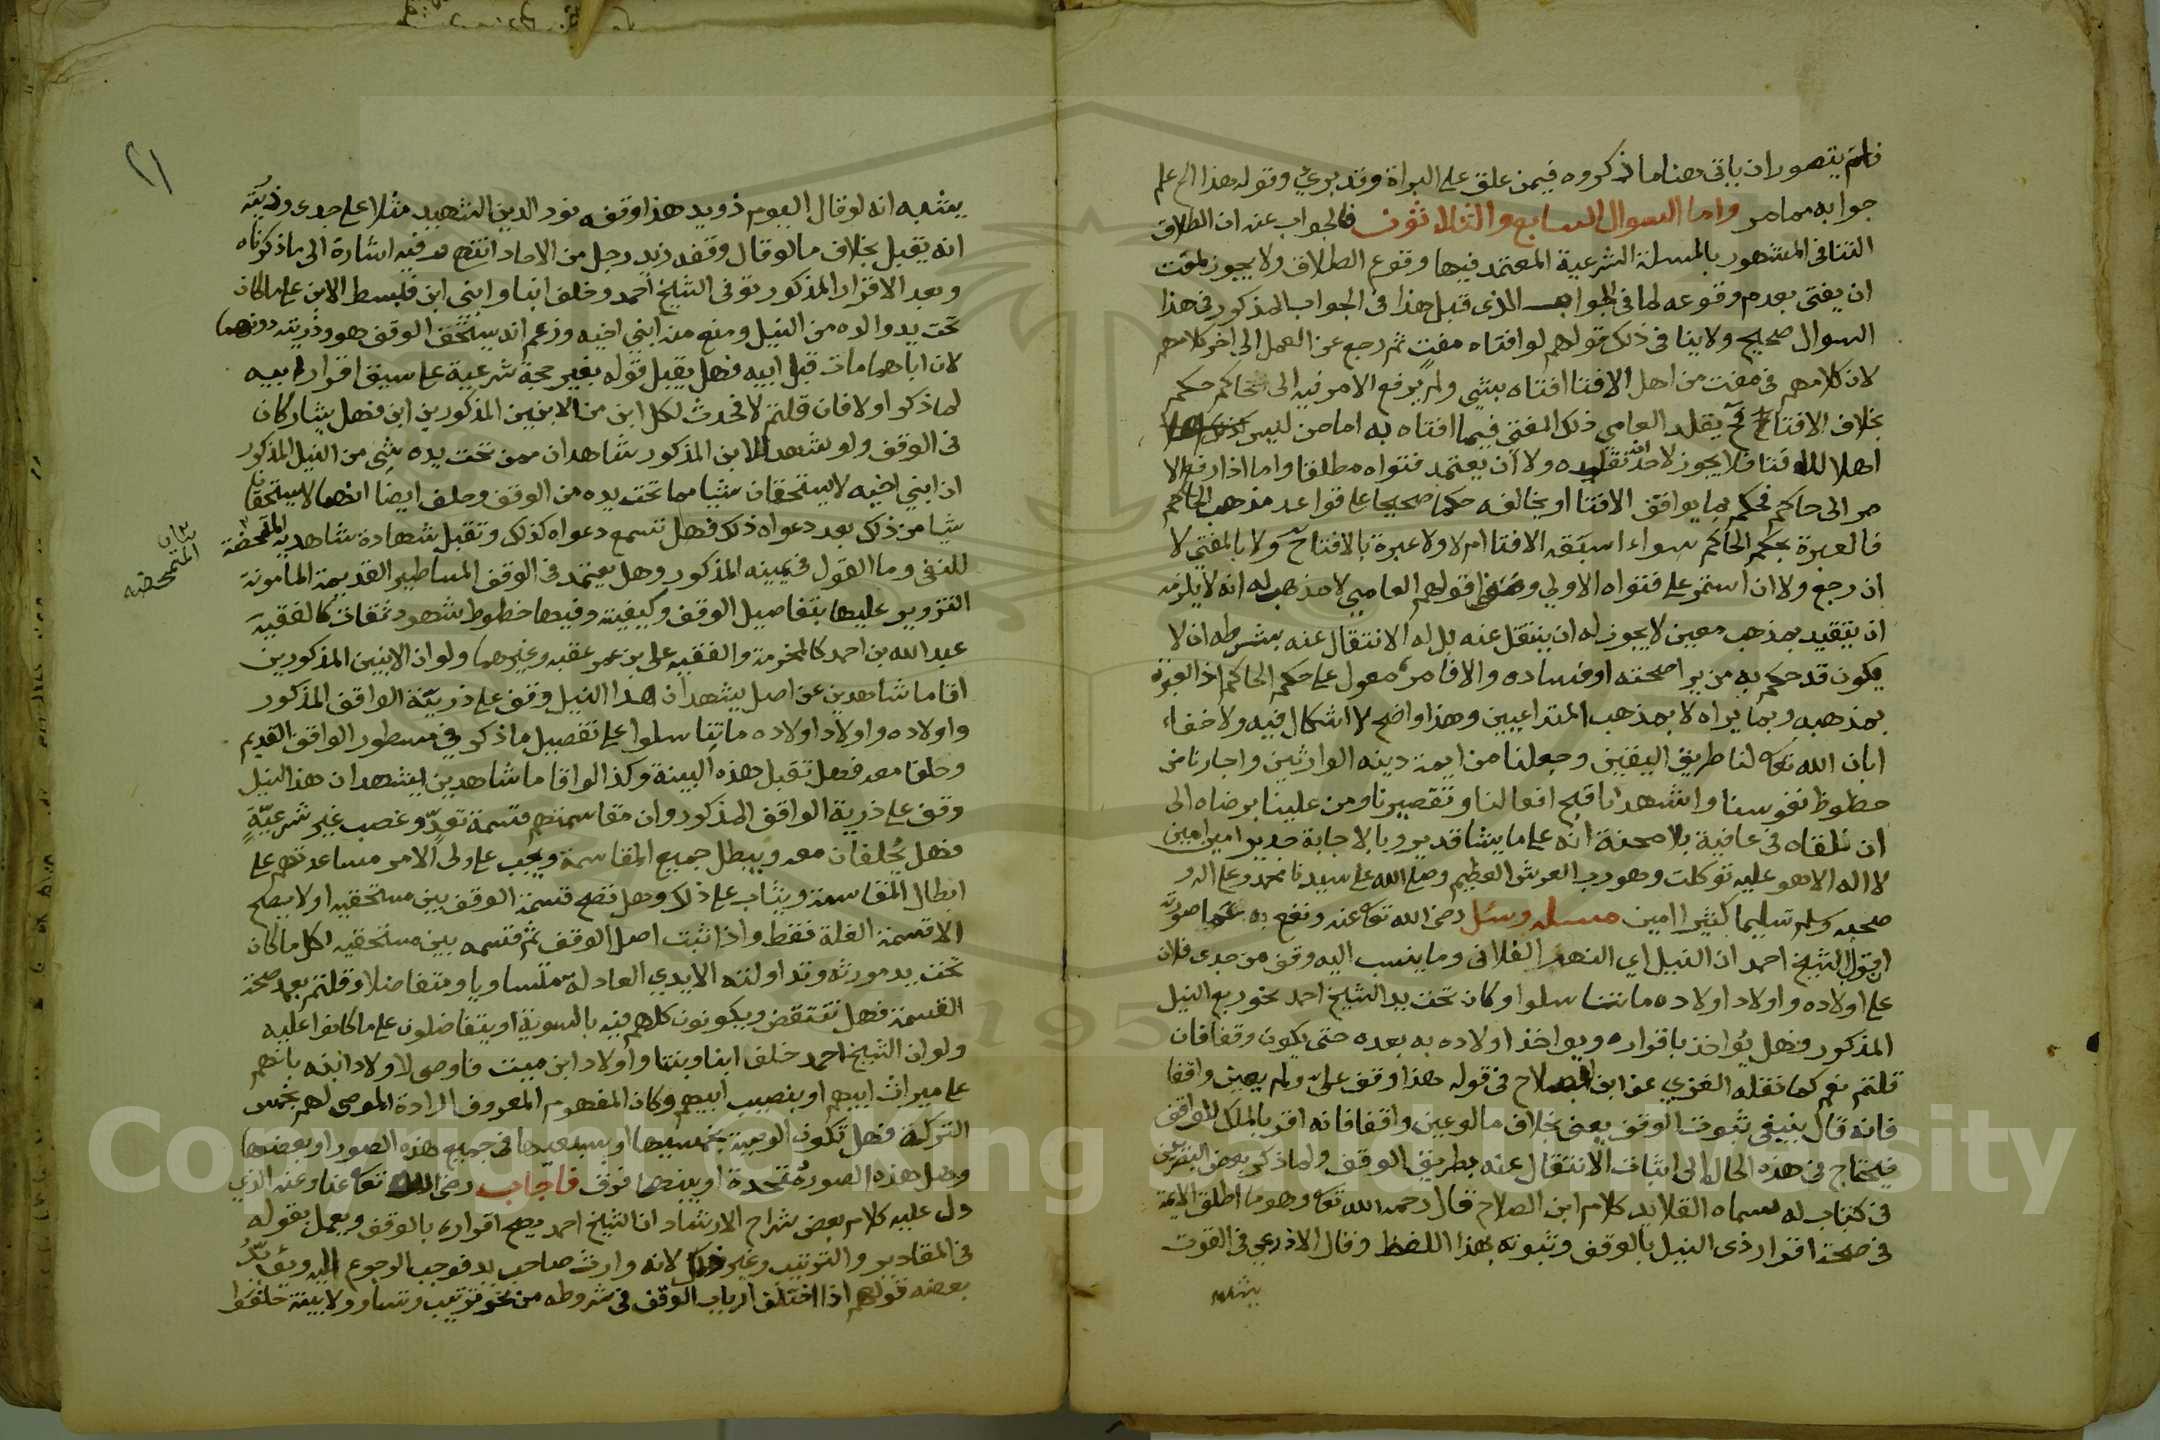 فلم يتصور ان ياتي هنا ما ذكروه فيمن علق على البراة وقد بري وقوله هذا الخ علم
جوابه مما مر واما السوال السابع والثلاثون فالجواب عنه ان الطلاق
التنافي المشهور بالمسلة الشرعية المعتمد فيها وقوع الطلاق ولا يجوز لمفت
ان يفتى بعدم وقوعه لما في الجواب الذي قبل هذا في الجواب المذكور في هذا
السوال صحيح ولا ينافي ذلك قولهم لو افتاه مفت ثم رجع عن العمل الى اخر كلامهم
لان كلامهم في مفت من اهل الافتا افتاه بشي ولم يرفع الامر فيه الى حاكم حكم
بخلاف الافتا يقلد العامي ذلك المفتي فيما افتاه به اما من ليس
اهلا للافتا فلا يجوز لاحد تقليده ولا ان يعتمد فتواه مطلقا واما اذا رفع الا
مر الى حاكم فحكم بما يوافق الافتا او يخالفه حكما صحيحا على قواعد مذهب الحاكم
فالعبرة بحكم الحاكم سواء اسبقه الافتا ام لا ولا عبرة بالافتا ولا بالمفتي لا
ان رجع ولا ان استمر على فتواه الاولى قولهم العامي لا مذهب له انه لا يلزمه
ان يتقيد بمذهب معين لا يجوز له ان ينتقل عنه بل له الانتقال عنه بشرطه ان لا
يكون قد حكم به من يرا صحته او فساده والا فالامر معول على حكم الحاكم اذ العبرة
بمذهبه وبما يراه لا بمذهب المتداعيين وهذا واضح لا اشكال فيه ولا خفاء
ابان الله تعالى لنا طريق اليقين وجعلنا من ايمة دينه الوارثين واجارنا من
حظوظ نفوسنا واشهدنا قبح افعالنا وتقصيرنا ومن علينا برضاه الى
ان نلقاه في عافية بلا محنة انه على ما يشا قدير وبالاجابة جدير امين امين
لا اله الا هو عليه توكلت وهو رب العرش العظيم وصلى الله على سيدنا محمد وعلى اله و
صحبه وسلم تسليما كثيرا امين مسله وسئل رضي الله تعالى عنه ونفع به عما صورته
اقول الشيخ احمد ان النيل اي النهر الفلاني وما ينسب اليه وقف من جدى فلان
على اولاده واولاد اولاده ما تناسلوا وكان تحت يد الشيخ احمد نحو ربع النيل
المذكور فهل يؤاخذ باقراره ويواخذ اولاده به بعده حتى يكون وقفا فان
قلتم نعم كما نقله الغزي عن ابن الصلاح في قوله هذا وقف علي ولم يعين واقفا
فانه قال ينبغى ثبوت الوقف يعنى بخلاف ما لو عين واقفا فانه اقر بالملك للواقف
فيحتاج في هذه الحال الى اثبات الانتقال عنه بطريق الوقف ولما ذكر بعض
في كتاب له سماه القلايد كلام ابن الصلاح قال رحمه الله تعالى وهو ما اطلق الايمة
في صحة اقرار ذى النيل بالوقف وثبوته بهذا اللفظ وقال الاذرعي في القوت
يشبه
٢١
يشبه انه لو قال اليوم ذو يد هذا وقفه نور الدين الشهيد مثلا على جدى وذريته
انه يقبل بخلاف ما لو قال وقفه زيد رجل من الاحاد انتهى فيه اشارة الى ما ذكرناه
وبعد الاقرار المذكور توفى الشيخ احمد وخلف ابنا وابني ابن فبسط الابن على ما كان
تحت يد والده من النيل ومنع منه ابني اخيه وزعم انه يستحق الوقف هو وذريته دونهما
لان اباهما مات قبل ابيه فهل يقبل قوله بغير حجة شرعية على سبق اقرار ابيه
لما ذكر او لا فان قلتم لا فحدث لكل ابن من الابنين المذكورين ابن فهل يشاركان
في الوقف ولو شهد للابن المذكور شاهدان ممن تحت يده شي من النيل المذكور
ان ابني اخيه لا يستحقان شيا مما تحت يده من الوقف وحلف ايضا انهما لا يستحقان
شيا من ذلك بعد دعواه ذلك فهل تسمع دعواه كذلك وتقبل شهادة شاهديه المتمحضة
بيان المتمحضه
للنفي وما القول في يمينه المذكور وهل يعتمد في الوقف المساطير القديمة المامونة
التزوير عليها بتفاصيل الوقف وكيفيته وفيها خطوط شهود ثقات كالفقيه
عبد الله بن احمد كالمخرمة والفقيه على بن عمر عقبه وغيرهما ولو ان الابنين المذكورين
اقاما شاهدين عن اصل يشهدان هذا النيل وقف على ذرية الواقف المذكور
واولاده واولاد اولاده ما تناسلوا على تفصيل ما ذكر في مسطور الواقف القديم
وحلفا معه فهل تقبل هذه البينة وكذا لو اقاما شاهدين يشهدان هذا النيل
وقف على ذرية الواقف المذكور وان مقاسمتهم قسمة تعد وغصب غير شرعية
فهل يحلفان معه ويبطل جميع المقاسمة ويجب على ولي الامر مساعدتهم على
ابطال المقاسمة ويثاب على ذلك وهل تصح قسمة الوقف بين مستحقيه او لا يصح
الا قسمة الغلة فقط واذا ثبت اصل الوقف ثم قسمه بين مستحقيه لكل ما كان
تحت يد مورثه وتداولته الايدي العادلة متساويا ومتفاضلا وقلتم بعدم صحة
القسمة فهل تنتقض ويكونون كلهم فيه بالسوية او يتفاضلون على ما كانوا عليه
ولو ان الشيخ احمد خلف ابنا وبنتا واولاد ابن ميت فاوصى لاولاد ابنه بانهم
على ميراث ابيهم او بنصيب ابيهم وكان المفهوم المعروف ارادة الموصى لهم بخمس
التركة فهل تكون الوصية بخمسيها او بسبعيها في جميع هذه الصور او بعضها
وهل هذه الصورة متحدة او بينهما فرق فاجاب رضي الله تعالى عنا وعنه الذي
دل عليه كلام بعض شراح الارشاد ان الشيخ احمد يصح اقراره بالوقف ويعمل بقوله
في المقادير والترتيب وغير ذلك لانه وارث صاحب يد فوجب الرجوع اليه ويؤيده
بعضه قولهم اذا اختلف ارباب الوقف في شروطه من نحو ترتيب وتساو ولا بينة حلفوا
Copyright © King Saud University
1957